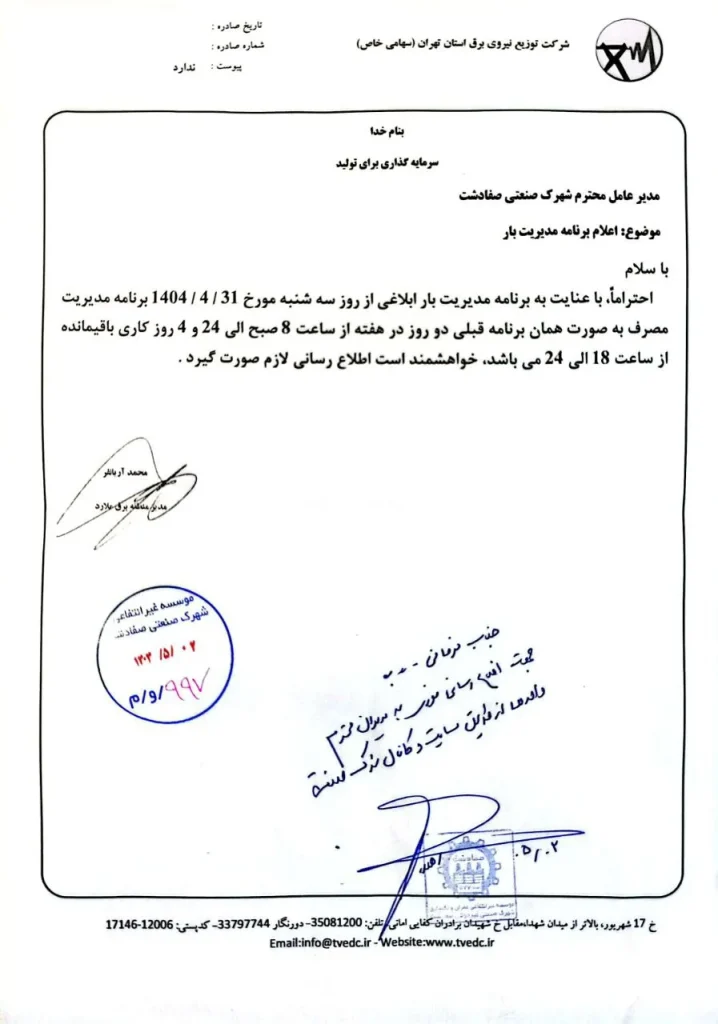 شرکت توزیع نیروی برق استان تهران (سهامی خاص)
تاریخ صادره :
شماره صادره :
پیوست : ندارد
بنام خدا
سرمایه گذاری برای تولید
مدیر عامل محترم شهرک صنعتی صفادشت
موضوع: اعلام برنامه مدیریت بار
با سلام
احتراماً، با عنایت به برنامه مدیریت بار ابلاغی از روز سه شنبه مورخ 31 / 4 / 1404 برنامه مدیریت
مصرف به صورت همان برنامه قبلی دو روز در هفته از ساعت 8 صبح الی 24 و 4 روز کاری باقیمانده
از ساعت 18 الی 24 می باشد، خواهشمند است اطلاع رسانی لازم صورت گیرد .
محمد آریانفر
مدیر منطقه برق ملارد
موسسه غیر انتفاعی
شهرک صنعتی صفادشت
۹۹۷/و/م
جناب
جهت اطلاع رسانی فوری به مدیران محترم
واحدها از طریق سایت و کانال شهرک
۰۵/۰۲
خ 17 شهریور، بالاتر از میدان شهداء،مقابل خ شهیدان برادران کفایی امانی، تلفن: 35081200– دورنگار 33797744– کدپستی: 12006-17146
Email:info@tvedc.ir - Website:www.tvedc.ir